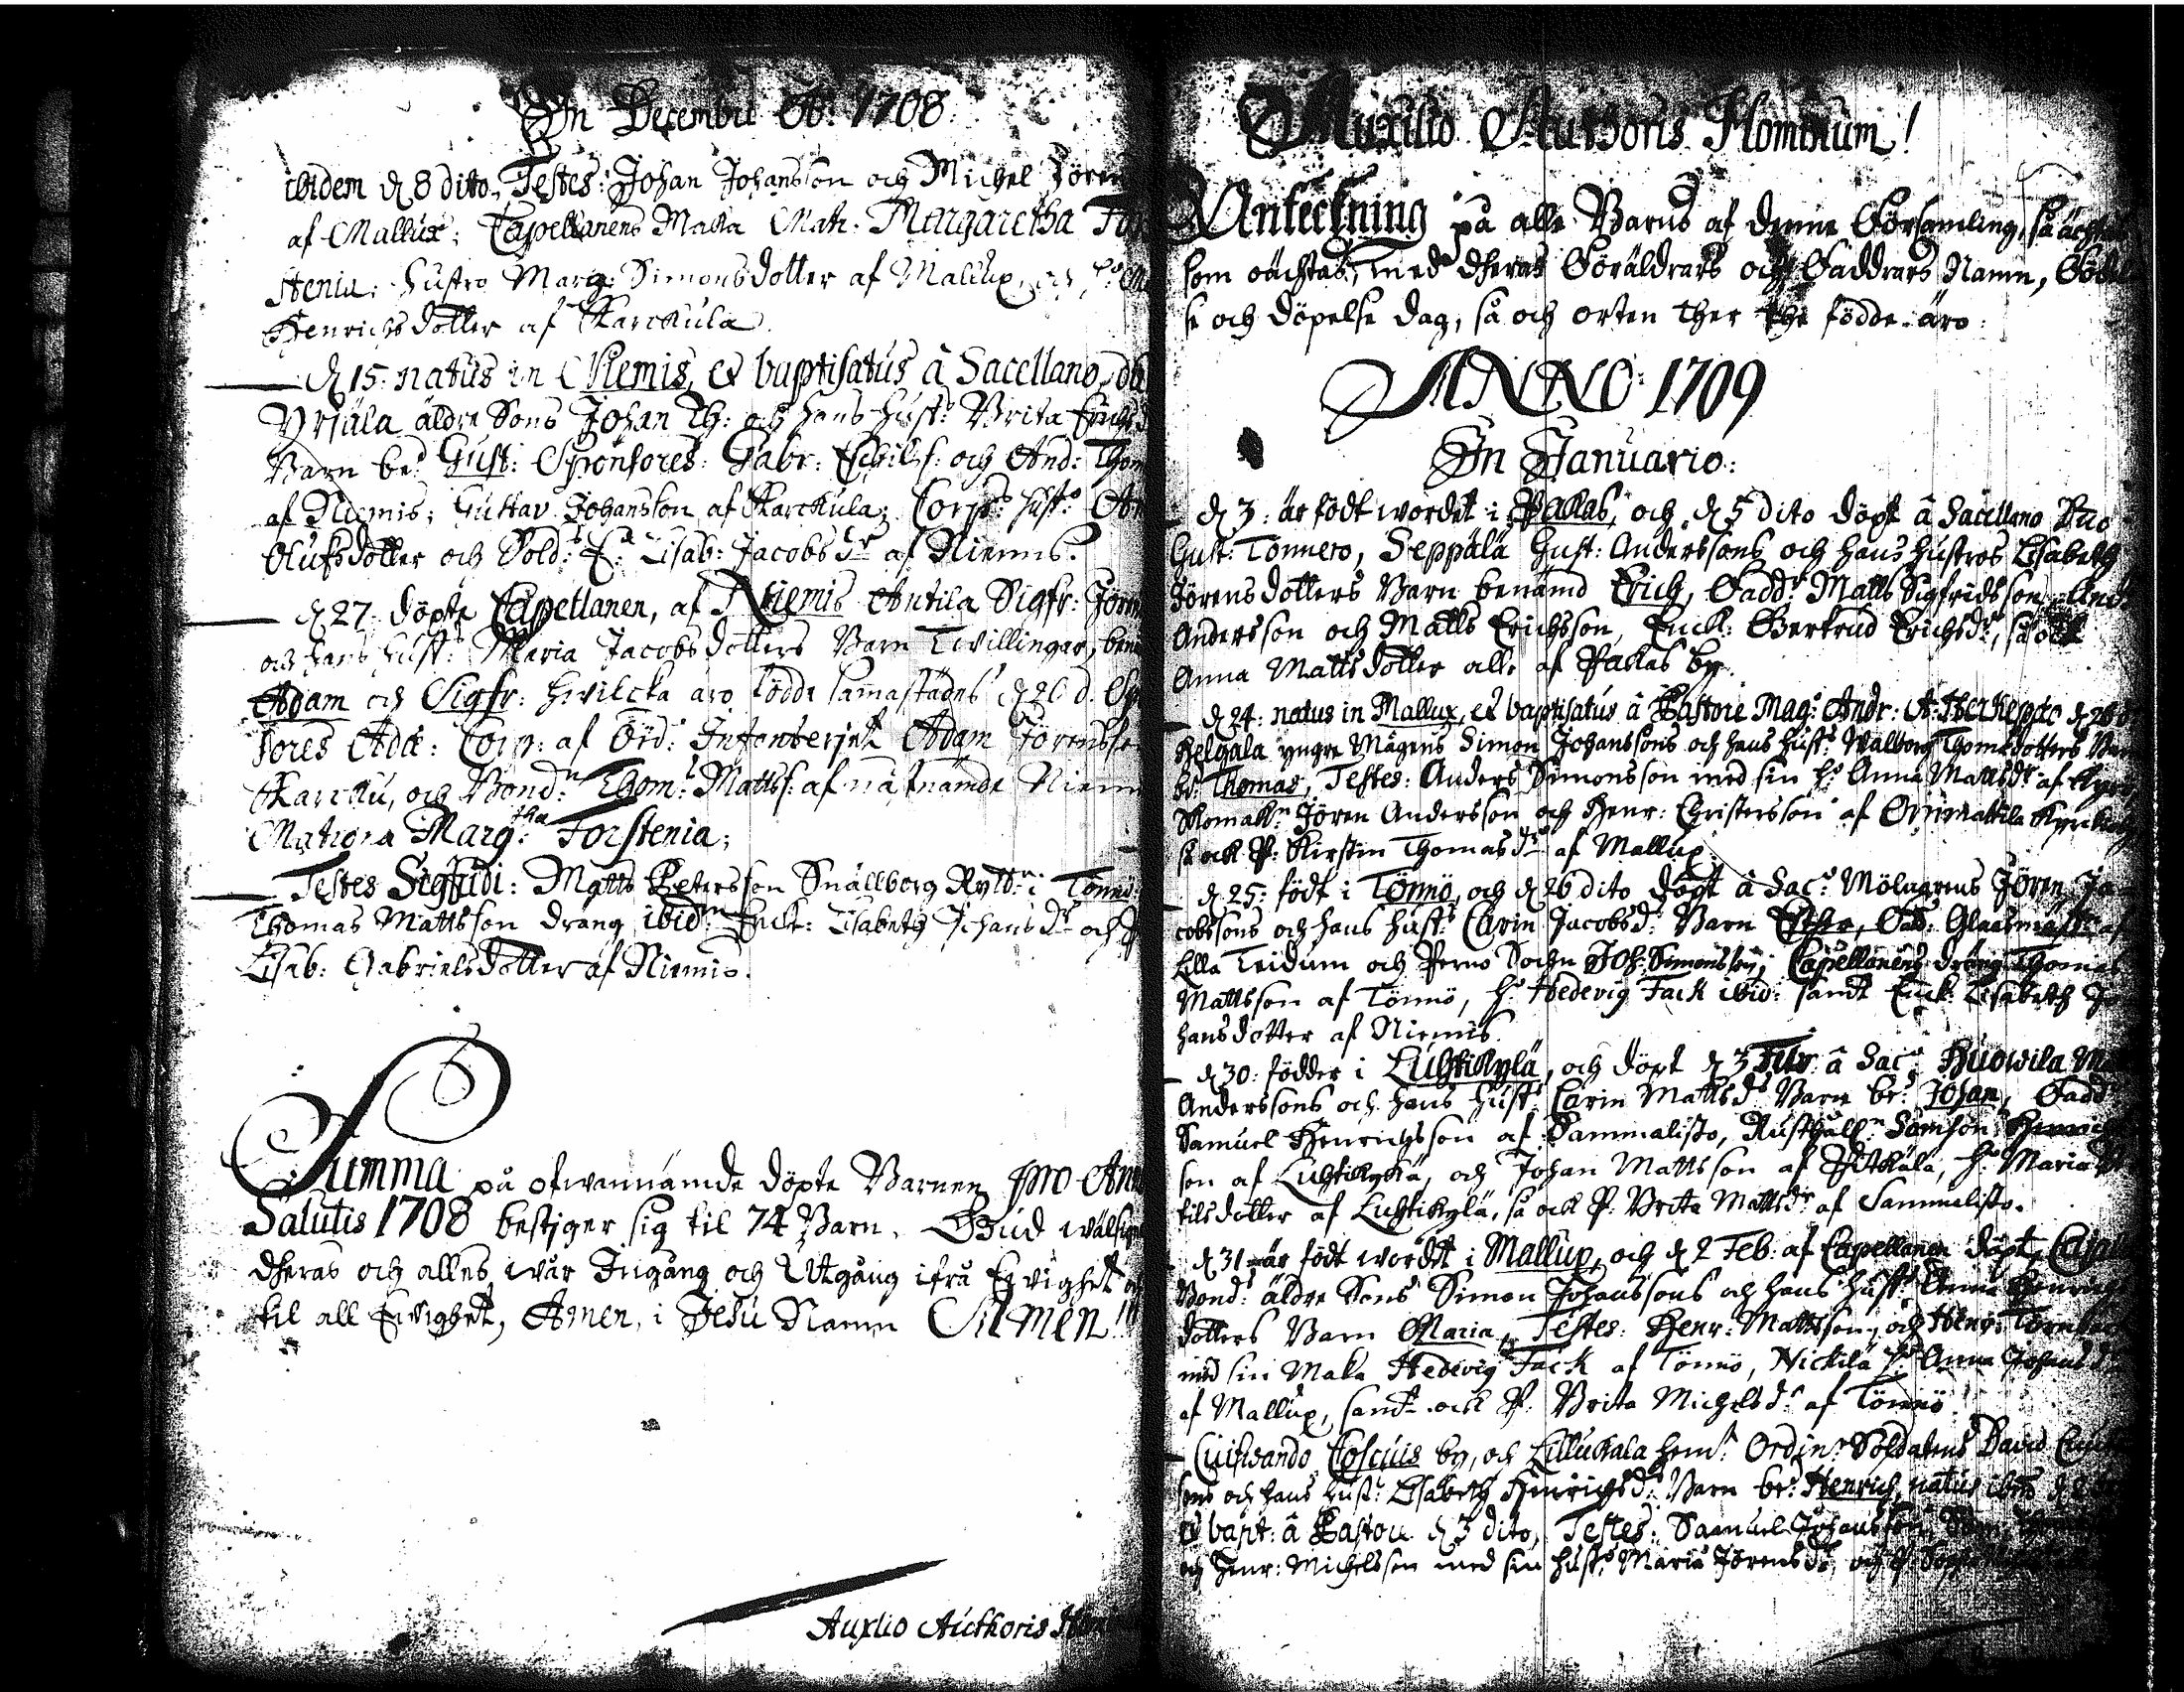 In Decembri Ao: 1708.
ibidem d 8 dito. Testes: Johan Johansson och Michel Jören
af Mallux; Capellanens Maka Matr: Margaretha
stenia: hustro Marg: Simonsdotter af Mallux,
Henrichsdotter af Karckula.
d 15: natus in Niemis, et baptisatus â Sacellano,
Yrjälä äldre Sons Johan Th: och hans hust: Brita Erichsd
Barn be:d Gust: Sponsores: Gabr: Eskilss: och And: Thom
af Niemis; Gustav Johansson af Karckula; Corp:s hust:o
Olufsdotter och Sold:s E: Lisab: Jacobsd:r af Niemis.
d 27. döpte Capellanen, af Niemis Antila Sigfr: Jören
och hans hust: Maria Jacobsdotters Barn Twillingar,
Adam och Sigfr: hwilcka äro födde sammastädes d 26 d.
sores Adæ: Corp: af Ord: Infanteriet Adam Jörensson
Karcku, och Bond:n Thom: Mattss: af näst nämde
Matrona Marg:tha Forstenia;
Testes Sigfridi: Matts Petersson Snällborg Rytt: i Tönnö:
Thomas Mattsson dräng ibid:m Enck: Lisabeth Johansd:r och
Lisab: Gabrielsdotter af Niemis.
Summa på ofwannämde döpte Barnen pro
Salutis 1708 bestiger sig til 74 Barn. Gud wälsigne
dheras och alles wår Ingång och Utgång ifrå Ewighet
til all Ewighet, Amen, i Jesu Namn Amen!
Auxlio Aucthoris
Auxilio Authoris Hominum!
Anteckning på alle Barns af denne Församling, så ächta
som oächtas, med dheras Föräldrars och Faddrars Namn, Föd
se och döpelse dag, så och orten ther the födde äro:
ANNO: 1709
In Januario:
d 3: är födt wordet i Pakas, och d 5 dito döpt â Sacellano
Gust: Tonnero, Seppälä Gust: Anderssons och hans hustros Lisabeth
Jörensdotters Barn benämd Erich, Fadd:r Matts Sigfridsson, And:
Andersson och Matts Erichsson, Enck: Gertrud Erichsd:r, så ock
Anna Mattsdotter alle af Pakas by.
d 24: natus in Mallux, et baptisatus â Pastore Mag: Andr: A:
Helgala yngre Mågens Simon Johanssons och hans hust:s Walborg Thomædotters
be: Thomas, Testes: Anders Simonsson med sin h:o Anna Mattsd:r af
Skomak:n Jören Andersson och Henr: Christersson af Orimattila
så ock P: Kirstin Thomasd:r af Mallux.
d 25: födt i Tönnö, och d 26 dito döpt â Sac:o Mölnarens Jören Ja
cobssons och hans hust:s Carin Jacobsd: Barn Esther, Fad: Glaasmäst:
Lilla Teidum och Perno Sochn Joh: Simonsson; Capellanens dräng Thomas
Mattsson af Tönnö, h:o Hedevig Fack ibid: samt Enck: Lisabeth Jo
hansdotter af Niemis.
d 30: födder i Luhtikylä, och döpt d 3 Febr: â Sac:o Huowila
Anderssons och hans hust: Carin Mattsd:s Barn be:d Johan, Fadd:
Samuel Henrichsson af Sammalisto, Rusthåll:n Samson
son af Luhtikylä, och Johan Mattsson af Pitkälä, h:o Maria
kilsdotter af Luhtikylä, så ock P: Brita Mattsd:r af Sammalisto.
d 31 är födt wordet i Mallux, och d 2 Feb: af Capellanen döpt,
Bond: äldre Sons Simon Johanssons och hans hust:s Anna Henrichs
dotters Barn Maria, Testes: Henr: Mattsson, och Henr:
med sin Maka Hedevig Fack af Tönnö, Nickilä h:o Anna Johansd:r
af Mallux, samt ock P: Brita Michelsd:r af Tönnö.
Cuiusdando Coscuis by, och Lillukala hem:s Ordin:r Soldatens David
sons och hans hust:s Lisabeth Henrichsd: Barn be: Henrich, natus ibid: d
et bapt: â Pastore d 3 dito, Testes: Samuel Johansson,
och Henr: Michelsson med sin hust:o Maria Jörensd:r, och P: